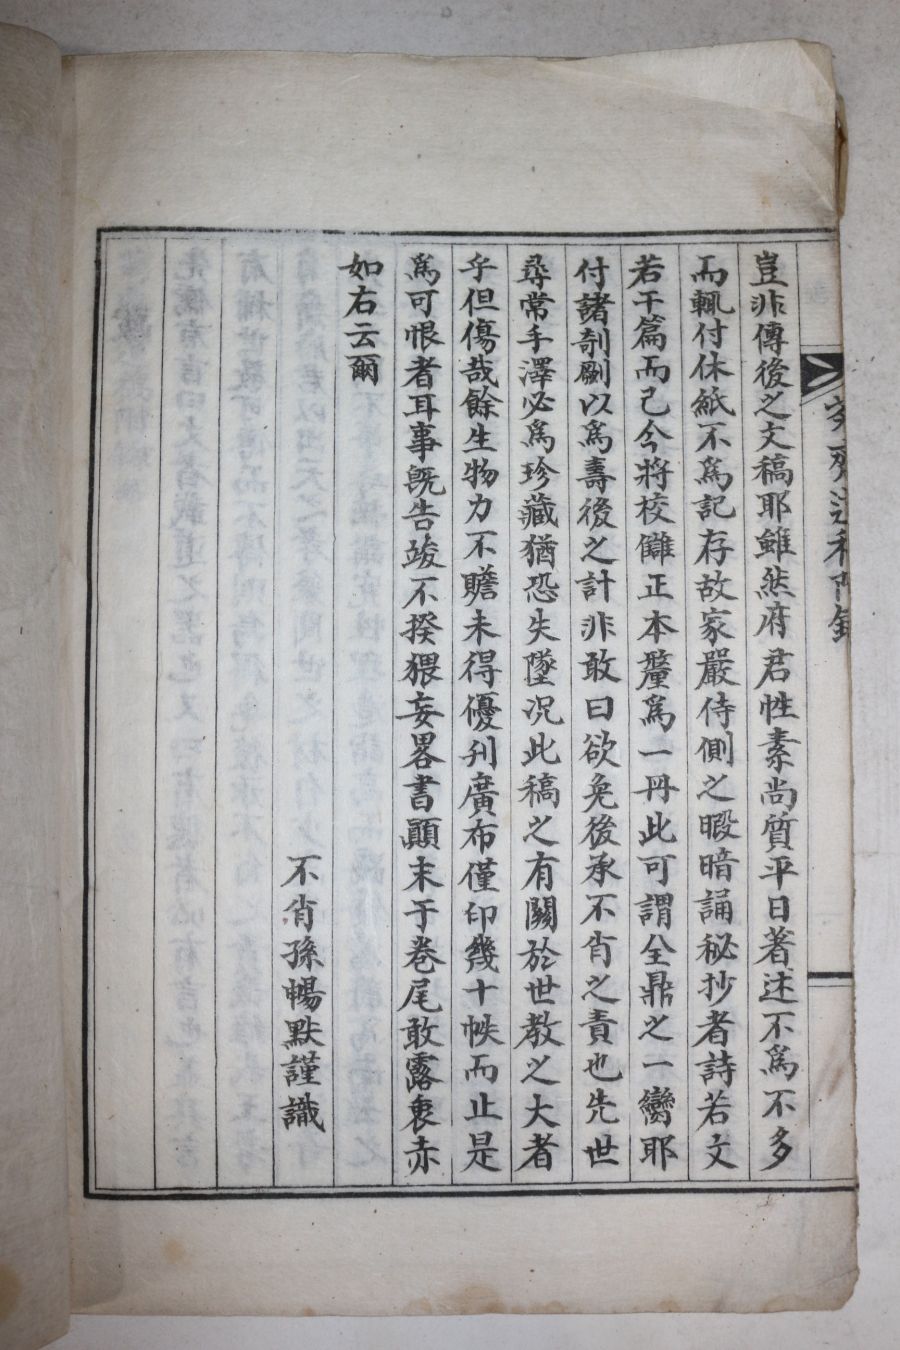 豈非傳後之文稿耶雖然府君性素尚質平日著述不爲不多
而輒付休紙不爲記存故家嚴侍側之暇暗誦秘抄者詩若文
若干篇而已今將校讎正本釐爲一冊此可謂全鼎之一臠耶
付諸剞劂以爲壽後之計非敢曰欲免後承不肖之責也先世
尋常手澤必爲珍藏猶恐失墜况此稿之有關於世教之大者
乎但傷哉餘生物力不贍未得優刋廣布僅印幾十帙而止是
爲可恨者耳事旣告竣不揆猥妄畧書顚末于卷尾敢露衷赤
如右云爾
不肖孫暢默謹識